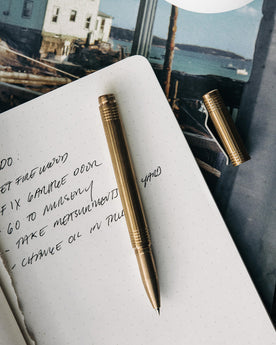 DO:
ET FIREWOOD
FIX GARAGE DOOR
- GO TO NURSERY
- TAKE MEASUREMENTS YARD
- CHANGE OIL IN